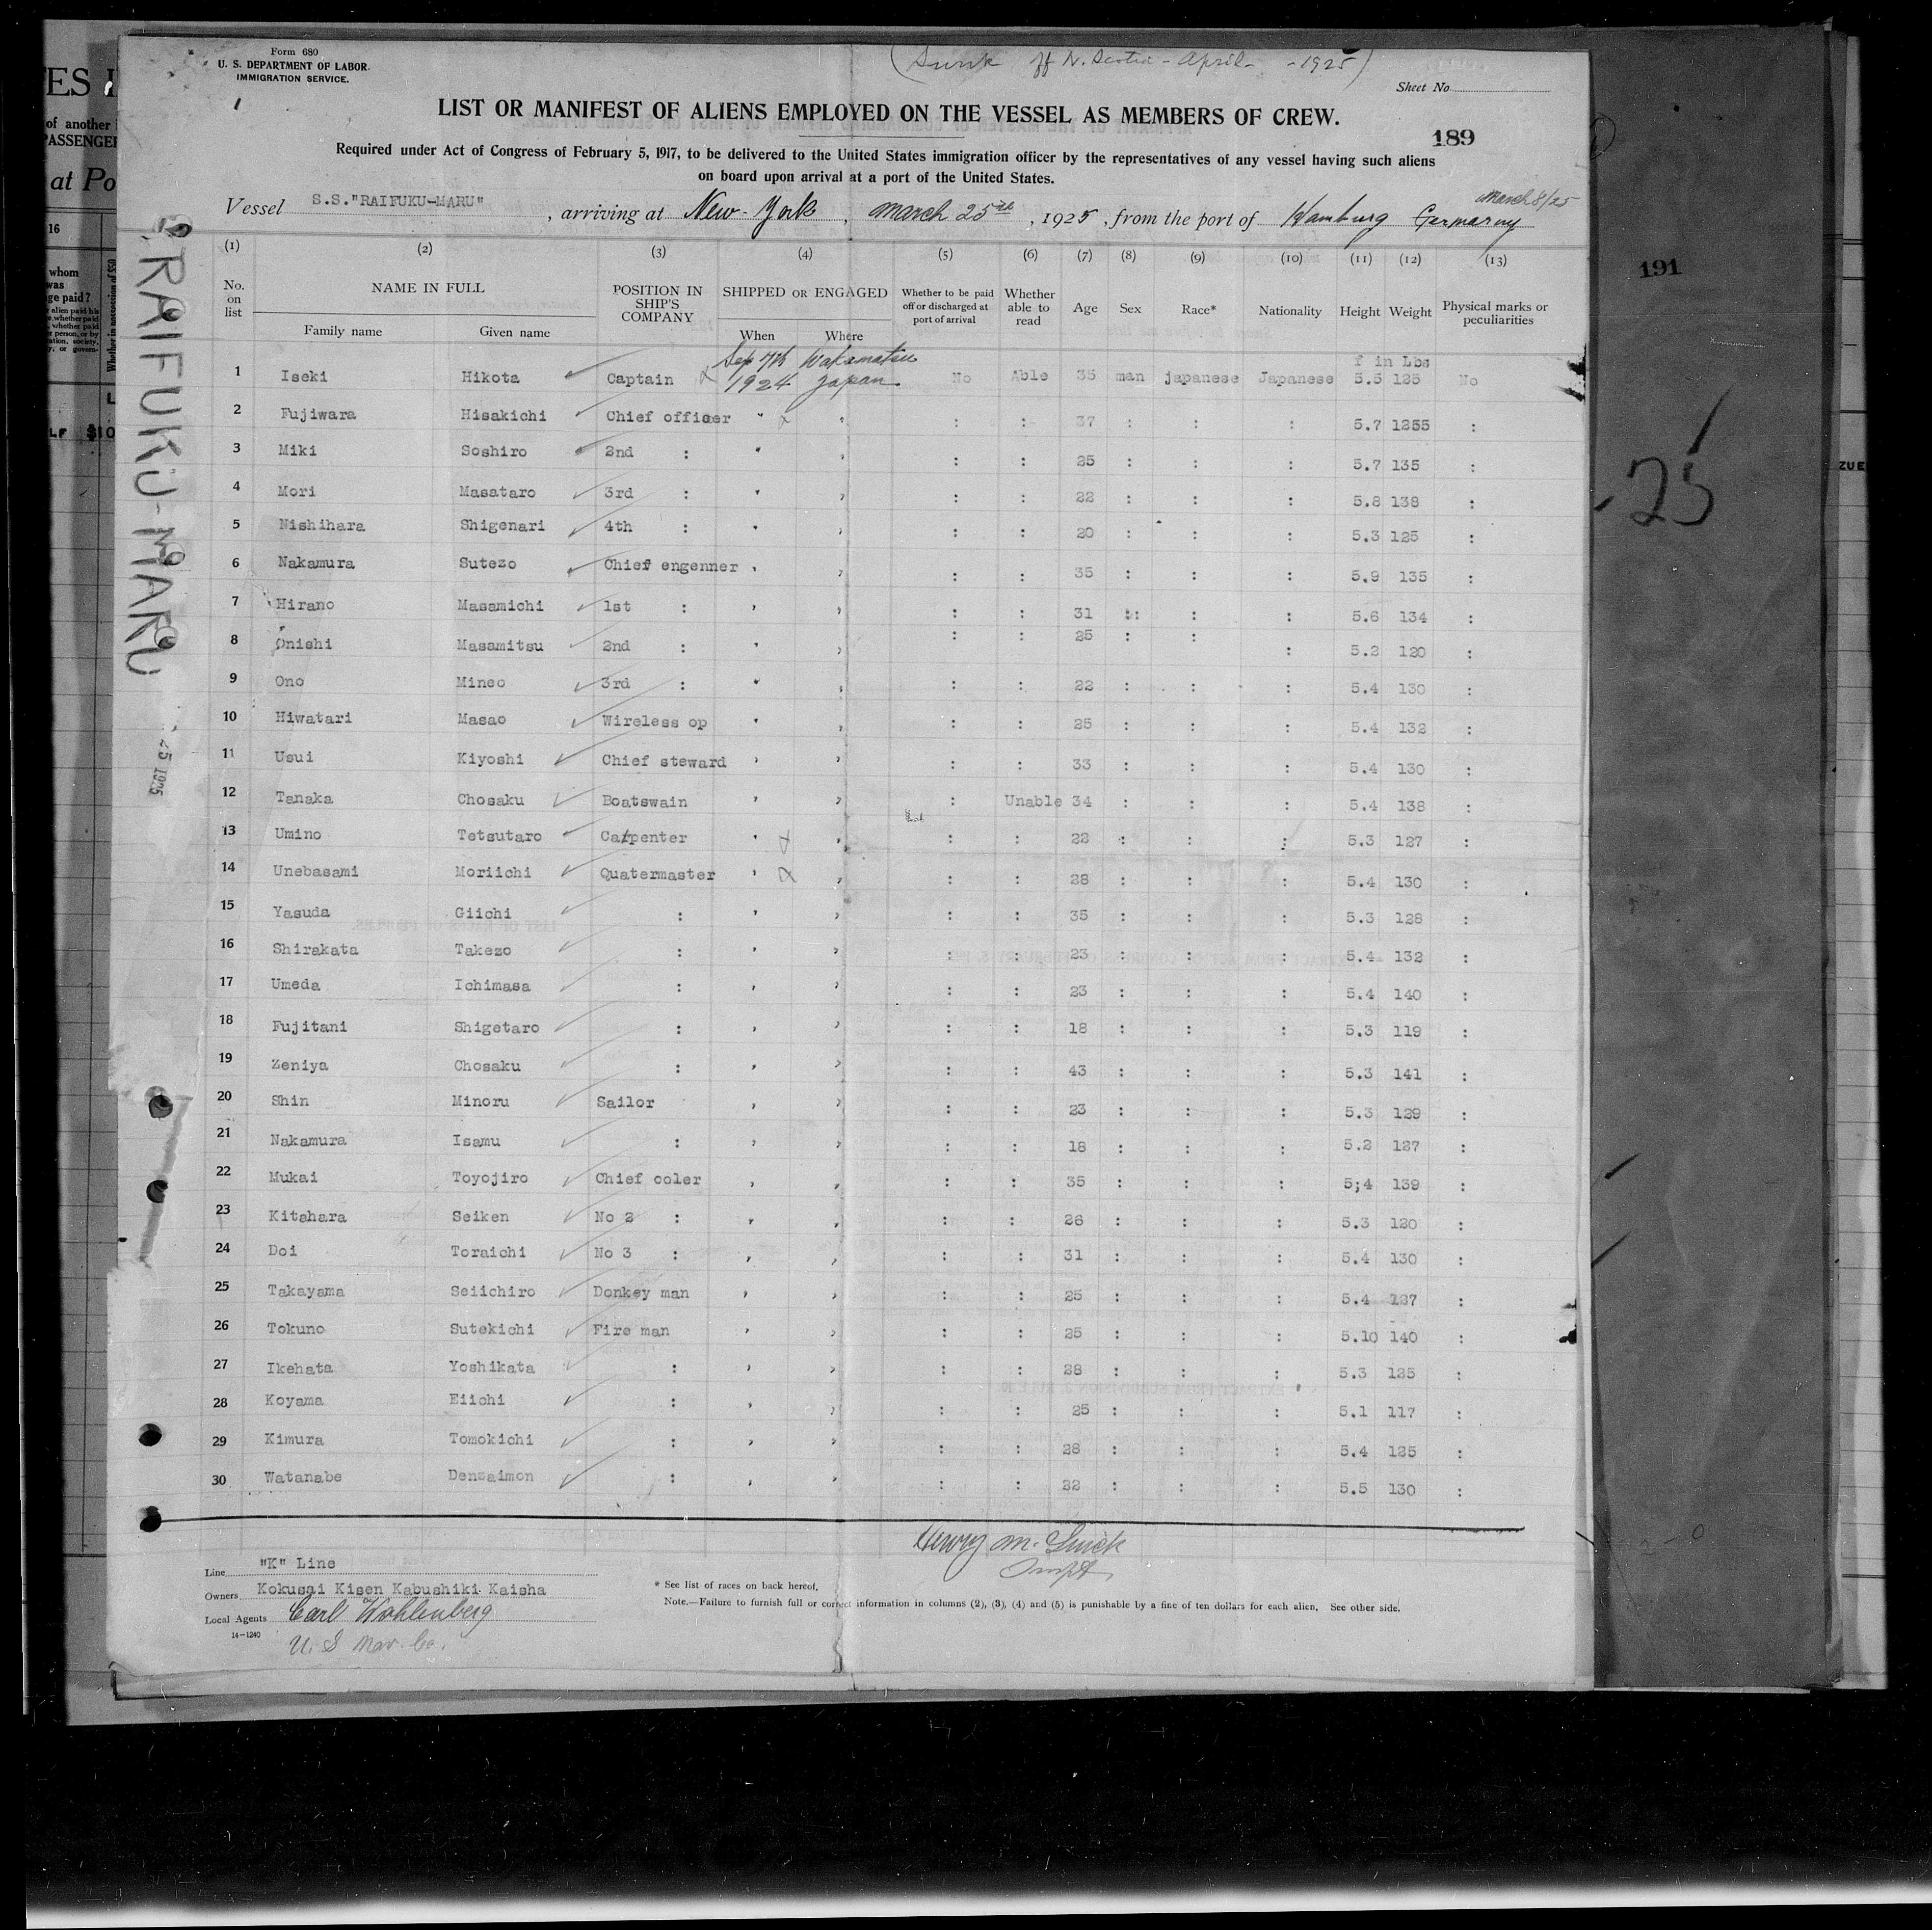 Form 680
U. S. DEPARTMENT OF LABOR.
IMMIGRATION SERVICE.
(Sunk off N. Scotia - April - 1925)
Sheet No.
LIST OR MANIFEST OF ALIENS EMPLOYED ON THE VESSEL AS MEMBERS OF CREW.
189
Required under Act of Congress of February 5, 1917, to be delivered to the United States immigration officer by the representatives of any vessel having such aliens
on board upon arrival at a port of the United States.
March 8/25
Vessel S.S."RAIFUKU-MARU", arriving at New-York, March 25th, 1925, from the port of Hamburg Germany
(1) (2) (3) (4) (5) (6) (7) (8) (9) (10) (11) (12) (13)
No. on list NAME IN FULL Family name Given name POSITION IN SHIP'S COMPANY SHIPPED OR ENGAGED When Where Whether to be paid off or discharged at port of arrival Whether able to read Age Sex Race* Nationality Height Weight Physical marks or peculiarities
Sep 7th Wakamatsu f in Lbs
1 Iseki Hikota Captain 1924 Japan No Able 35 man japanese Japanese 5.5 125 No
2 Fujiwara Hisakichi Chief officer " " : : 37 : : : 5.7 1255 :
3 Miki Soshiro 2nd : " " : : 25 : : : 5.7 135 :
4 Mori Masataro 3rd : " " : : 22 : : : 5.8 138 :
5 Nishihara Shigenari 4th : " " : : 20 : : : 5.3 125 :
6 Nakamura Sutezo Chief engenner " " : : 35 : : : 5.9 135 :
7 Hirano Masamichi 1st : " " : : 31 :: : : 5.6 134 :
8 Onishi Masamitsu 2nd : " " : : 25 : : : 5.2 120 :
9 Ono Mineo 3rd : " " : : 22 : : : 5.4 130 :
10 Hiwatari Masao Wireless op " " : : 25 : : : 5.4 132 :
11 Usui Kiyoshi Chief steward " " : : 33 : : : 5.4 130 :
12 Tanaka Chosaku Boatswain " " : Unable 34 : : : 5.4 138 :
13 Umino Tetsutaro Carpenter " " : : 22 : : : 5.3 127 :
14 Unebasami Moriichi Quatermaster " " : : 28 : : : 5.4 130 :
15 Yasuda Giichi : " " : : 35 : : : 5.3 128 :
16 Shirakata Takezo : " " : : 23 : : : 5.4 132 :
17 Umeda Ichimasa : " " : : 23 : : : 5.4 140 :
18 Fujitani Shigetaro : " " : : 18 : : : 5.3 119 :
19 Zeniya Chosaku : " " : : 43 : : : 5.3 141 :
20 Shin Minoru Sailor " " : : 23 : : : 5.3 129 :
21 Nakamura Isamu : " " : : 18 : : : 5.2 127 :
22 Mukai Toyojiro Chief ooler " " : : 35 : : : 5;4 139 :
23 Kitahara Seiken No 2 : " " : : 26 : : : 5.3 120 :
24 Doi Toraichi No 3 : " " : : 31 : : : 5.4 130 :
25 Takayama Seiichiro Donkey man " " : : 25 : : : 5.4 127 :
26 Tokuno Sutekichi Fire man " " : : 25 : : : 5.10 140 :
27 Ikehata Yoshikata : " " : : 28 : : : 5.3 125 :
28 Koyama Eiichi : " " : : 25 : : : 5.1 117 :
29 Kimura Tomokichi : " " : : 28 : : : 5.4 125 :
30 Watanabe Denzaimon : " " : : 22 : : : 5.5 130 :
Line "K" Line
Owners Kokusai Kisen Kabushiki Kaisha
Local Agents Carl Wohlenberg
14-1240
U. S Mar. Co.
Henry M.
* See list of races on back hereof.
Note.—Failure to furnish full or correct information in columns (2), (3), (4) and (5) is punishable by a fine of ten dollars for each alien. See other side.
RAIFUKU-MARU
25 1925
191
25
ES
of another
PASSENGE
at Po
16
whom
was
ge paid?
Whether in possession of $50
$10
ZUE